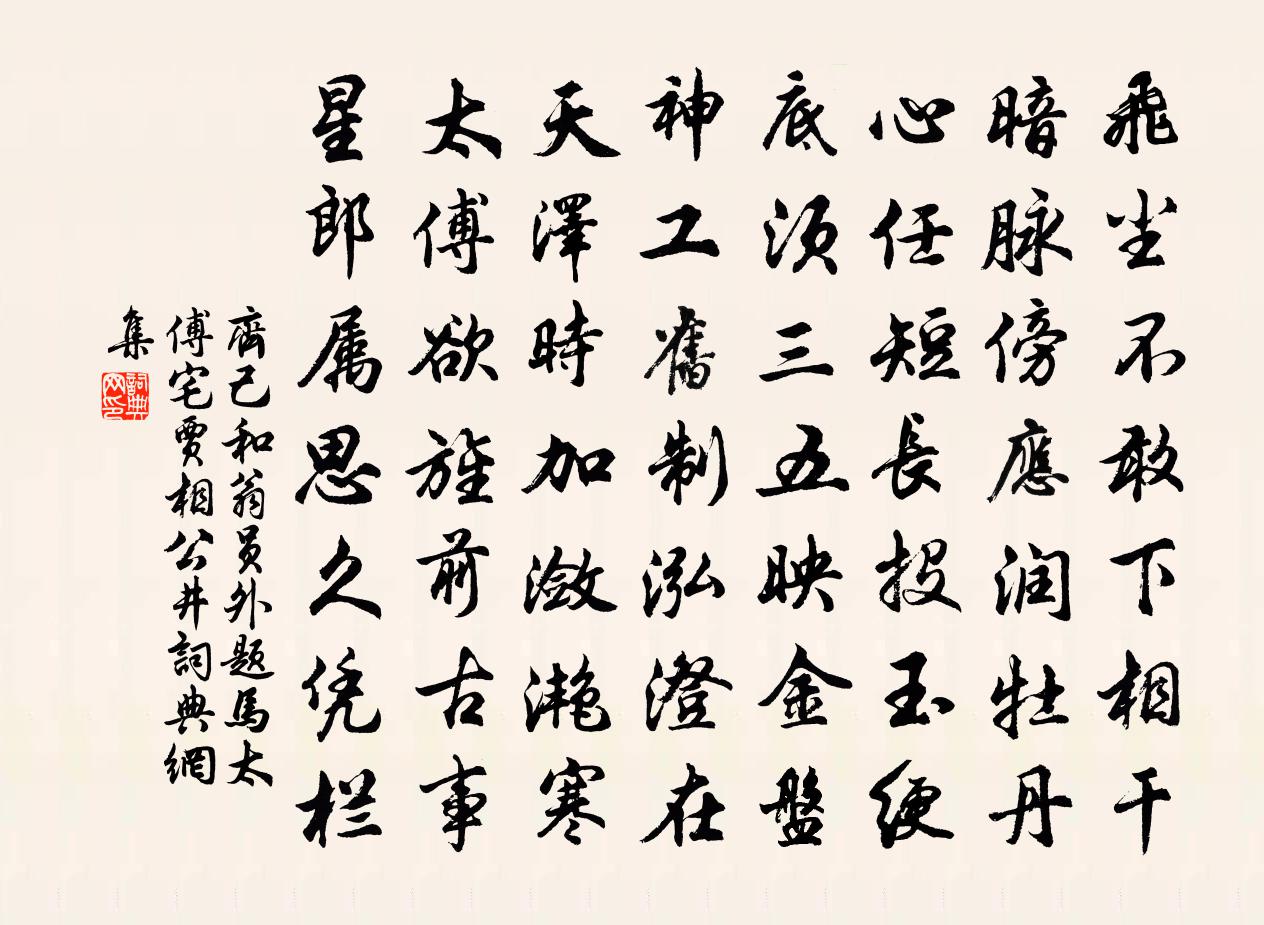 飛尘不敢下相干
暗脉傍應润牡丹
心任短長投玉绠
底须三五映金盤
神工舊制泓澄在
天澤時加潋滟寒
太傅欲旌前古事
星郎属思久凭栏
齊己和翁员外题馬太
傅宅贾相公井詞典網
集
詞典网印